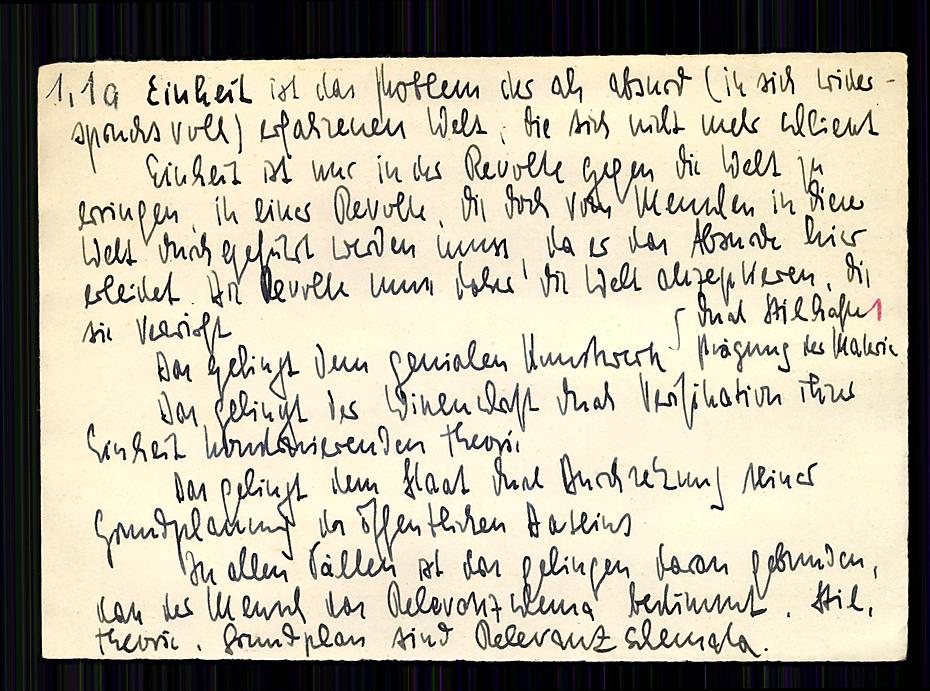 1,1a Einheit ist das Problem der als absurd (in sich wider-
spruchsvoll) erfahrenen Welt, die sich nicht mehr
Einheit ist nur in der Revolte gegen die Welt zu
erringen, in einer Revolte, die doch vom Menschen in dieser
Welt durchgeführt werden muss, da er das Absurde hier
erleidet. Die Revolte muss daher die Welt akzeptieren, die
sie verwirft
durch Stilhafte
Das gelingt dem genialen Kunstwerk Prägung der Materie
Das gelingt der Wissenschaft durch Verifikation ihrer
Einheit konstruierenden Theorie
Das gelingt dem Staat durch Durchsetzung seiner
Grundplanung des öffentlichen Daseins
In allen Fällen ist das gelingen daran gebunden,
dass der Mensch das Relevanzschema bestimmt. Stil,
Theorie, Grundplan sind Relevanzschemata.